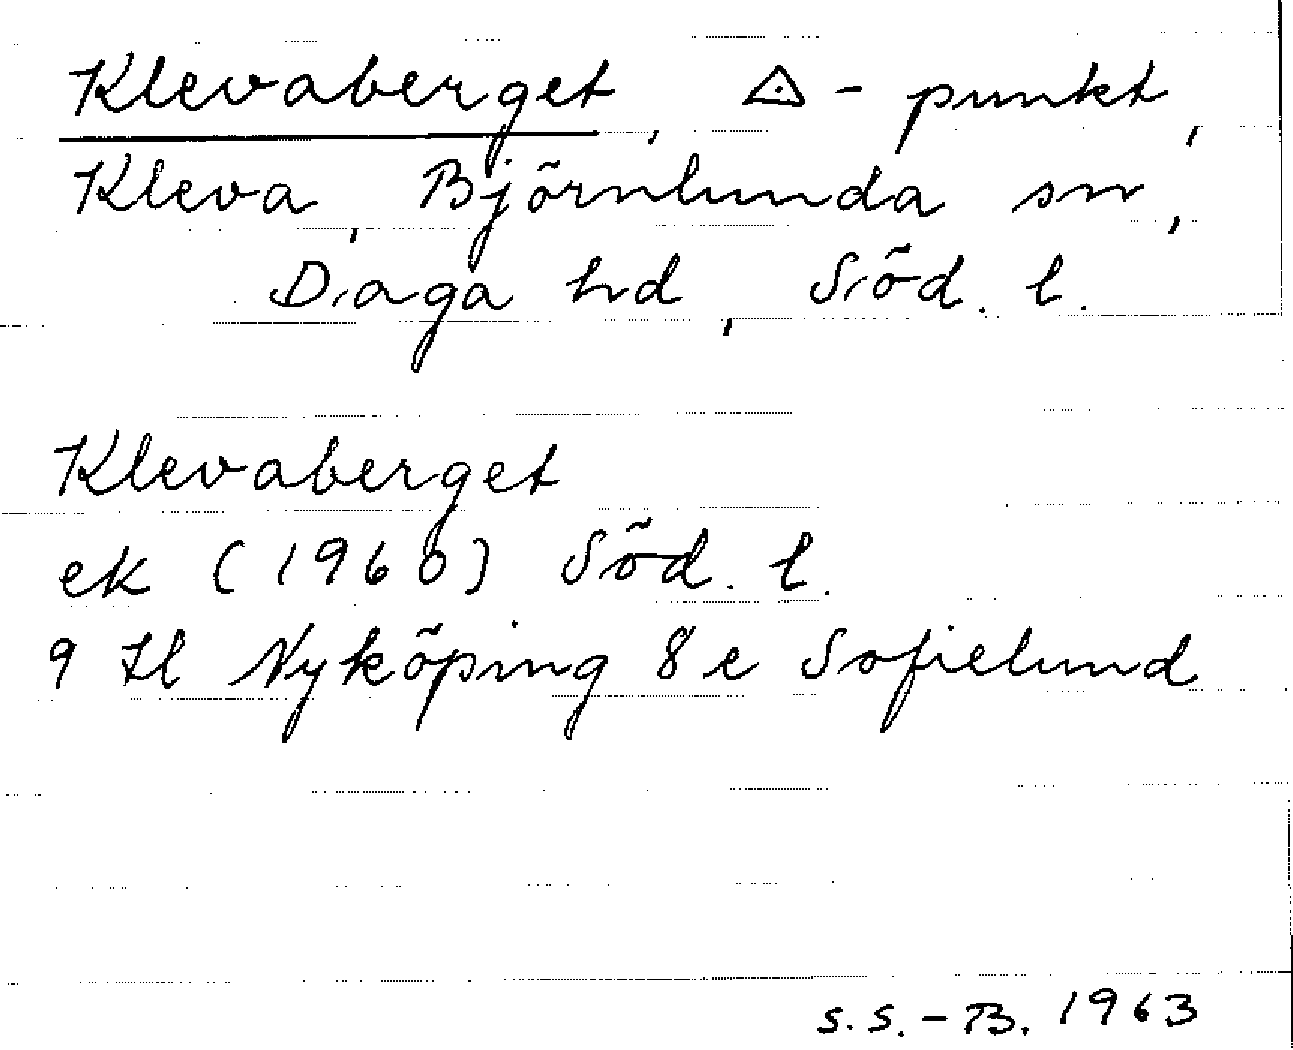 Klevaberget, △ - punkt,
Kleva, Björnlunda sn,
Daga hd, Söd. l.
Klevaberget
ek (1960) Söd. l.
9 H Nyköping 8 e Sofielund
S.S.-B. 1963